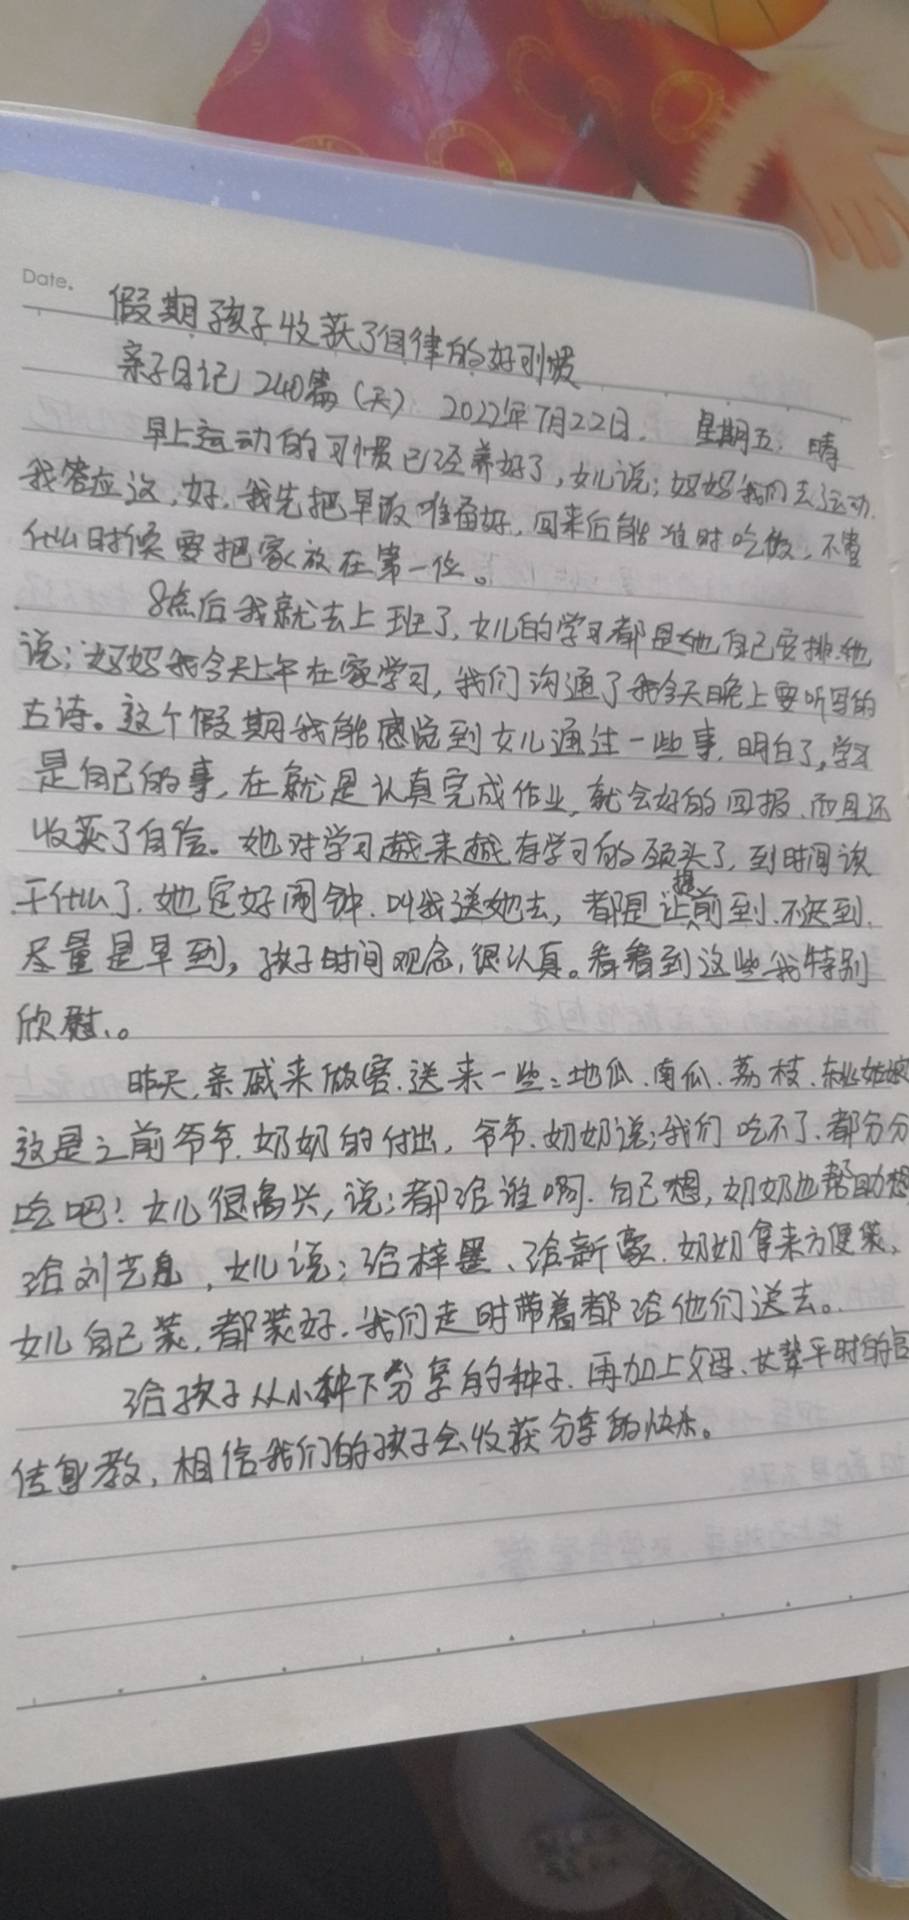 Date.
假期孩子收获了自律的好习惯
亲子日记 240篇（天） 2022年7月22日. 星期五. 晴
早上运动的习惯已经养好了,女儿说;妈妈我们去运动.
我答应这,好,我先把早饭准备好,回来后能准时吃饭,不管
什么时候要把家放在第一位。
8点后我就去上班了,女儿的学习都是她自己安排.她
说;妈妈我今天上午在家学习,我们沟通了我今天晚上要听写的
古诗。这个假期我能感觉到女儿通过一些事,明白了,学习
是自己的事,在就是认真完成作业,就会好的回报.而且还
收获了自信。她对学习越来越有学习的劲头了,到时间该
干什么了.她定好闹钟.叫我送她去,都是提前到.不迟到.
尽量是早到,孩子时间观念,很认真。看看到这些我特别
欣慰.。
昨天,亲戚来做客.送来一些:地瓜.南瓜.荔枝.
这是之前爷爷.奶奶的付出,爷爷.奶奶说;我们吃不了.都分分
吃吧!女儿很高兴,说;都给谁啊.自己想,奶奶也帮助想
给刘艺,女儿说;给梓墨、给新豪.奶奶拿来方便袋、
女儿自己装,都装好.我们走时带着都给他们送去。
给孩子从小种下分享的种子.再加上父母、长辈平时的言
传身教,相信我们的孩子会收获分享的快乐。